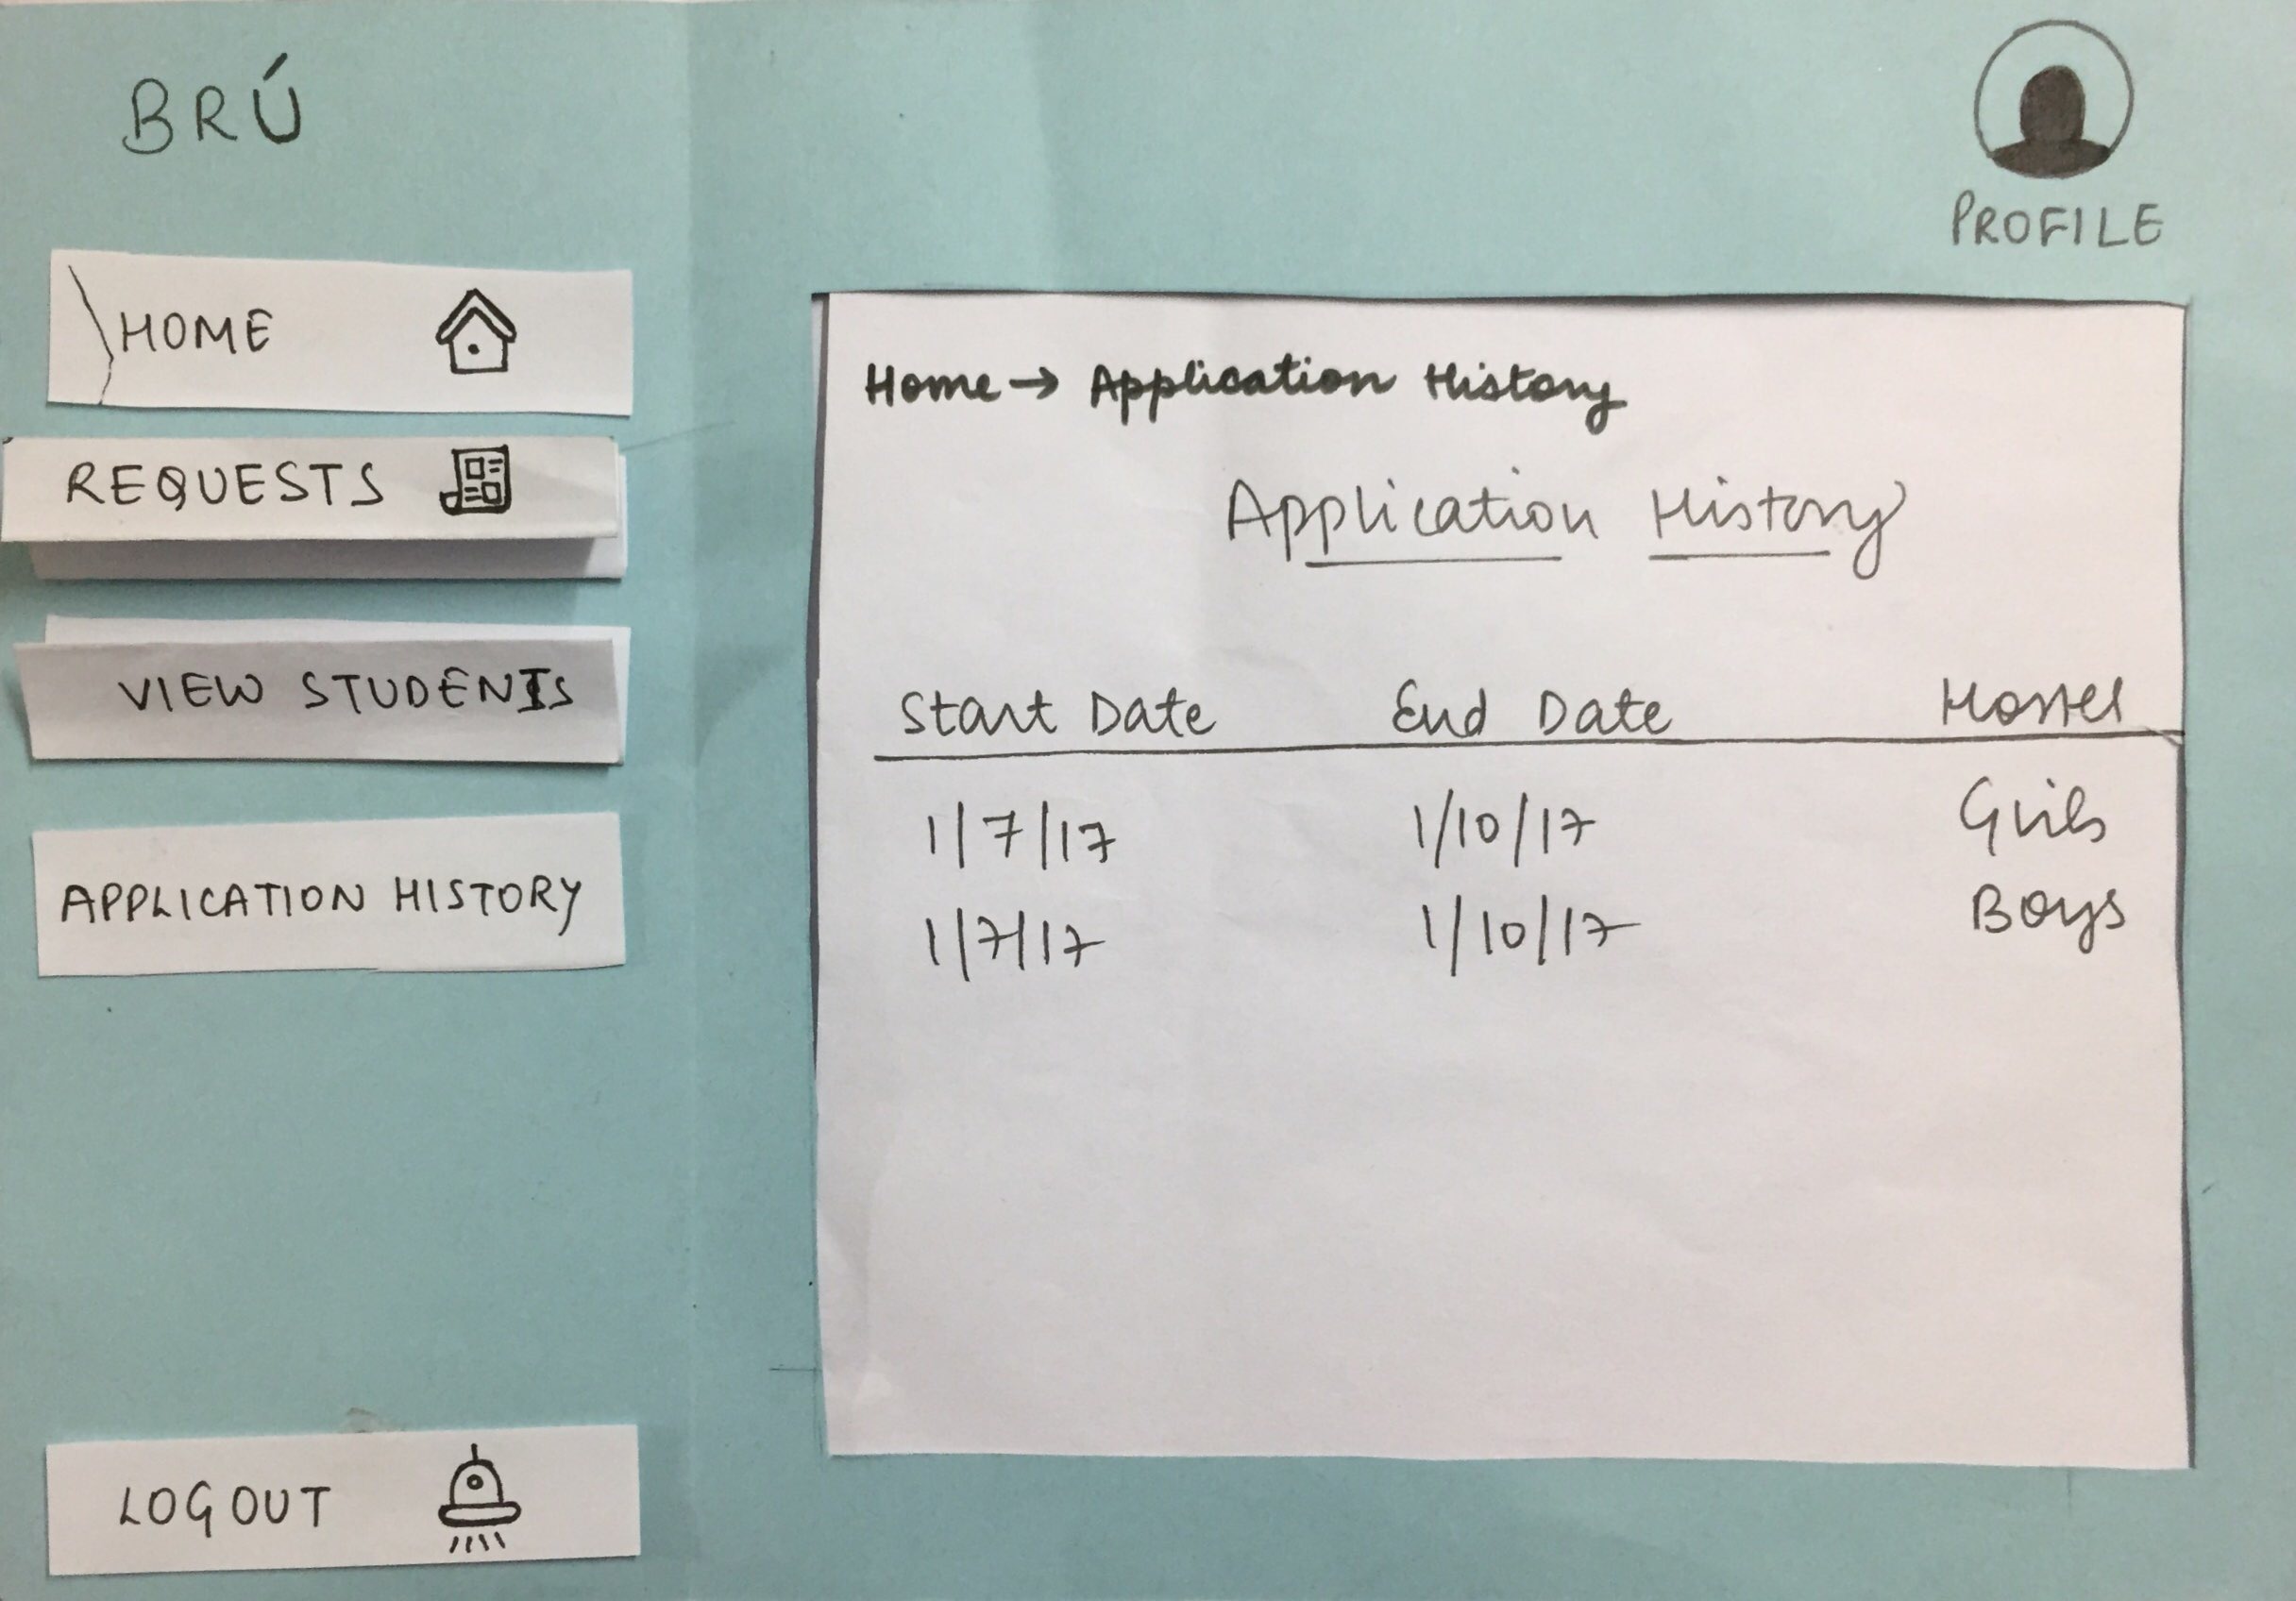 BRÚ
PROFILE
HOME
REQUESTS
VIEW STUDENTS
APPLICATION HISTORY
LOGOUT
Home → Application History
Application History
Start Date End Date Hostel
1/7/17 1/10/17 Girls
1/7/17 1/10/17 Boys